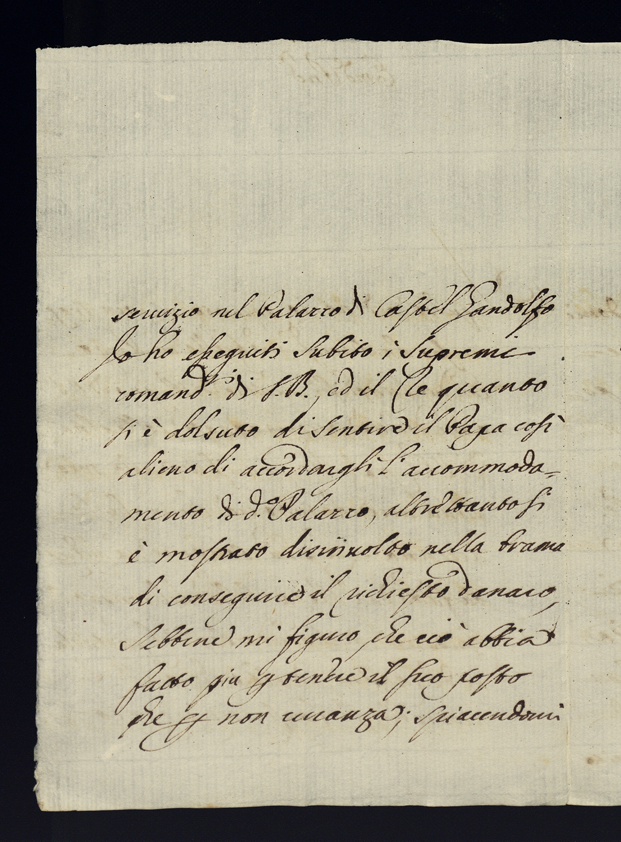 servizio nel Palazzo di Castel Gandolfo
Io ho eseguiti subito i supremi
comand.i di S. B., ed il Re quanto
si è dolsuto di sentire il Papa così
alieno di accordargli l'accommoda-
mento di d.o Palazzo, altrettanto si
è mostrato disinvolto nella brama
di conseguire il richiesto danaro,
sebbene mi figuro, che ciò abbia
fatto più p tenere il suo posto
che p non curanza; spiacendomi